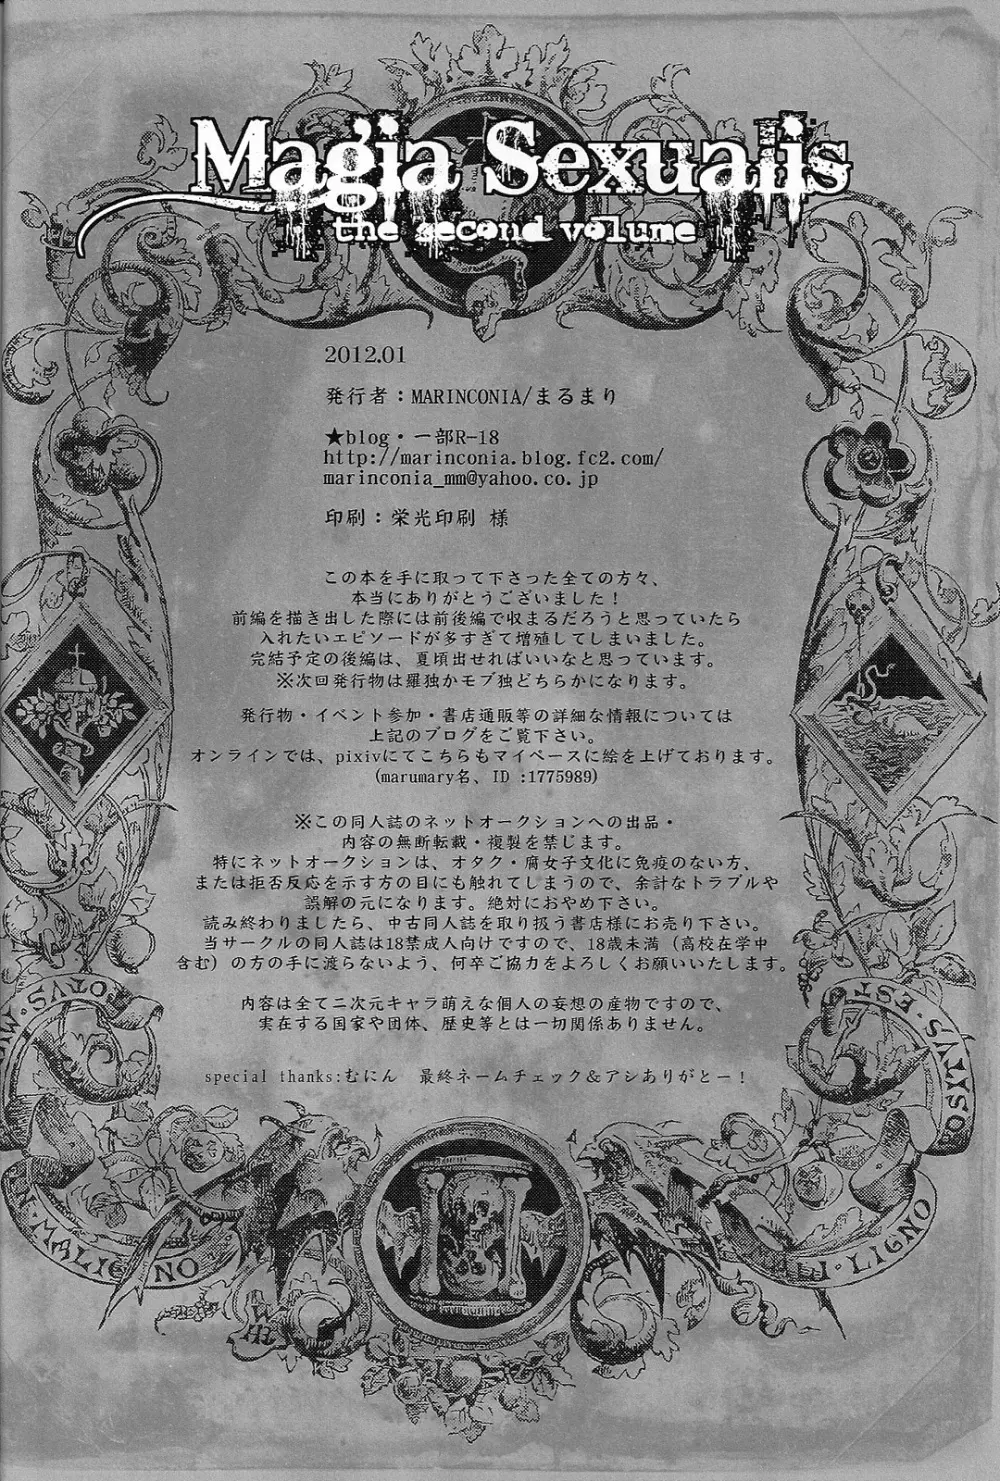 Magia Sexualis
the second volume
2012.01
発行者：MARINCONIA/まるまり
★blog・一部R-18
http://marinconia.blog.fc2.com/
marinconia_mm@yahoo.co.jp
印刷：栄光印刷 様
この本を手に取って下さった全ての方々、
本当にありがとうございました！
前編を描き出した際には前後編で収まるだろうと思っていたら
入れたいエピソードが多すぎて増殖してしまいました。
完結予定の後編は、夏頃出せればいいなと思っています。
※次回発行物は羅独かモブ独どちらかになります。
発行物・イベント参加・書店通販等の詳細な情報については
上記のブログをご覧下さい。
オンラインでは、pixivにてこちらもマイペースに絵を上げております。
(marumary名、ID :1775989)
※この同人誌のネットオークションへの出品・
内容の無断転載・複製を禁じます。
特にネットオークションは、オタク・腐女子文化に免疫のない方、
または拒否反応を示す方の目にも触れてしまうので、余計なトラブルや
誤解の元になります。絶対におやめ下さい。
読み終わりましたら、中古同人誌を取り扱う書店様にお売り下さい。
当サークルの同人誌は18禁成人向けですので、18歳未満（高校在学中
含む）の方の手に渡らないよう、何卒ご協力をよろしくお願いいたします。
内容は全て二次元キャラ萌えな個人の妄想の産物ですので、
実在する国家や団体、歴史等とは一切関係ありません。
special thanks:むにん　最終ネームチェック＆アシありがとー！
IN·MALIGNO
LI·LIGNO